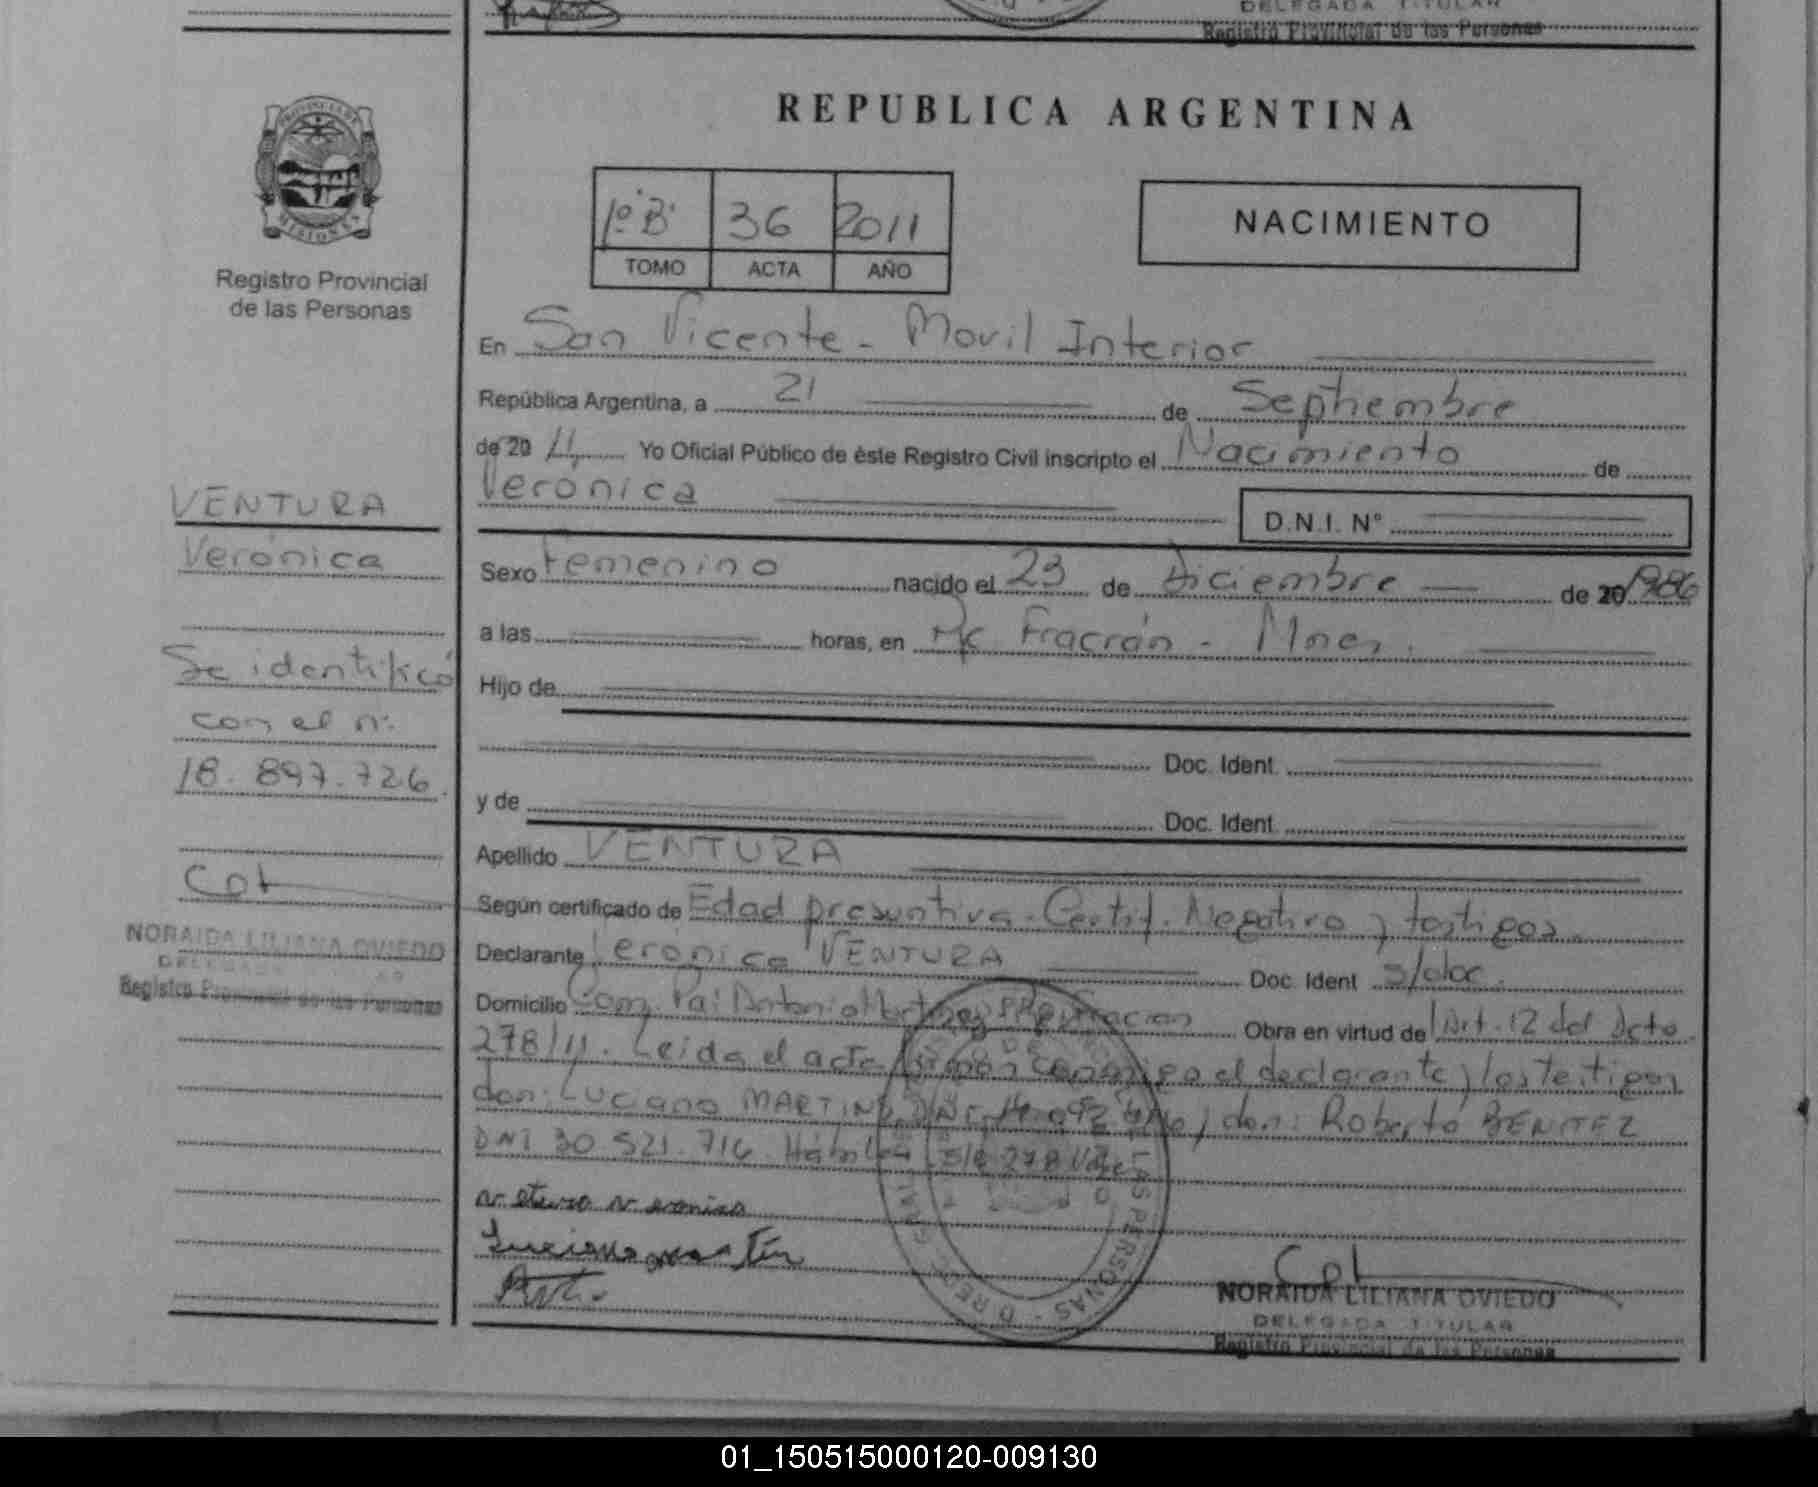 DELEGADA TITULAR
Registro Provincial de las Personas
PROVINCIA DE
MISIONES
Registro Provincial
de las Personas
REPUBLICA ARGENTINA
1º "B" 36 2011
TOMO ACTA AÑO
NACIMIENTO
En San Vicente - Movil Interior
República Argentina, a 21 de Septiembre
de 20 11, Yo Oficial Público de éste Registro Civil inscripto el Nacimiento de
Verónica D.N.I. Nº
Sexo Femenino nacido el 23 de Diciembre de 20 1986
a las horas, en Pje Fracrán - Mnes.
Hijo de
Doc. Ident.
y de Doc. Ident.
Apellido VENTURA
Según certificado de Edad presuntiva. Certif. Negativo y testigos.
Declarante Verónica VENTURA Doc. Ident s/doc.
Domicilio Com. Pai Antonio Martinez Fracran Obra en virtud del Art. 12 del Dcto.
278/11. Leida el acta firman conmigo el declarante y los testigos
don: Luciano MARTINEZ DNI y don: Roberto BENITEZ
DNI 30.521.716. Hábiles 278 Vale
veturo veronica
Luciano martin
NORAIDA LILIANA OVIEDO
DELEGADA TITULAR
Registro Provincial de las Personas
VENTURA
Verónica
Se identificó
con el nº.
18.897.726.
NORAIDA LILIANA OVIEDO
DELEGADA
Registro Provincial de las Personas
LAS PERSONAS
01_150515000120-009130